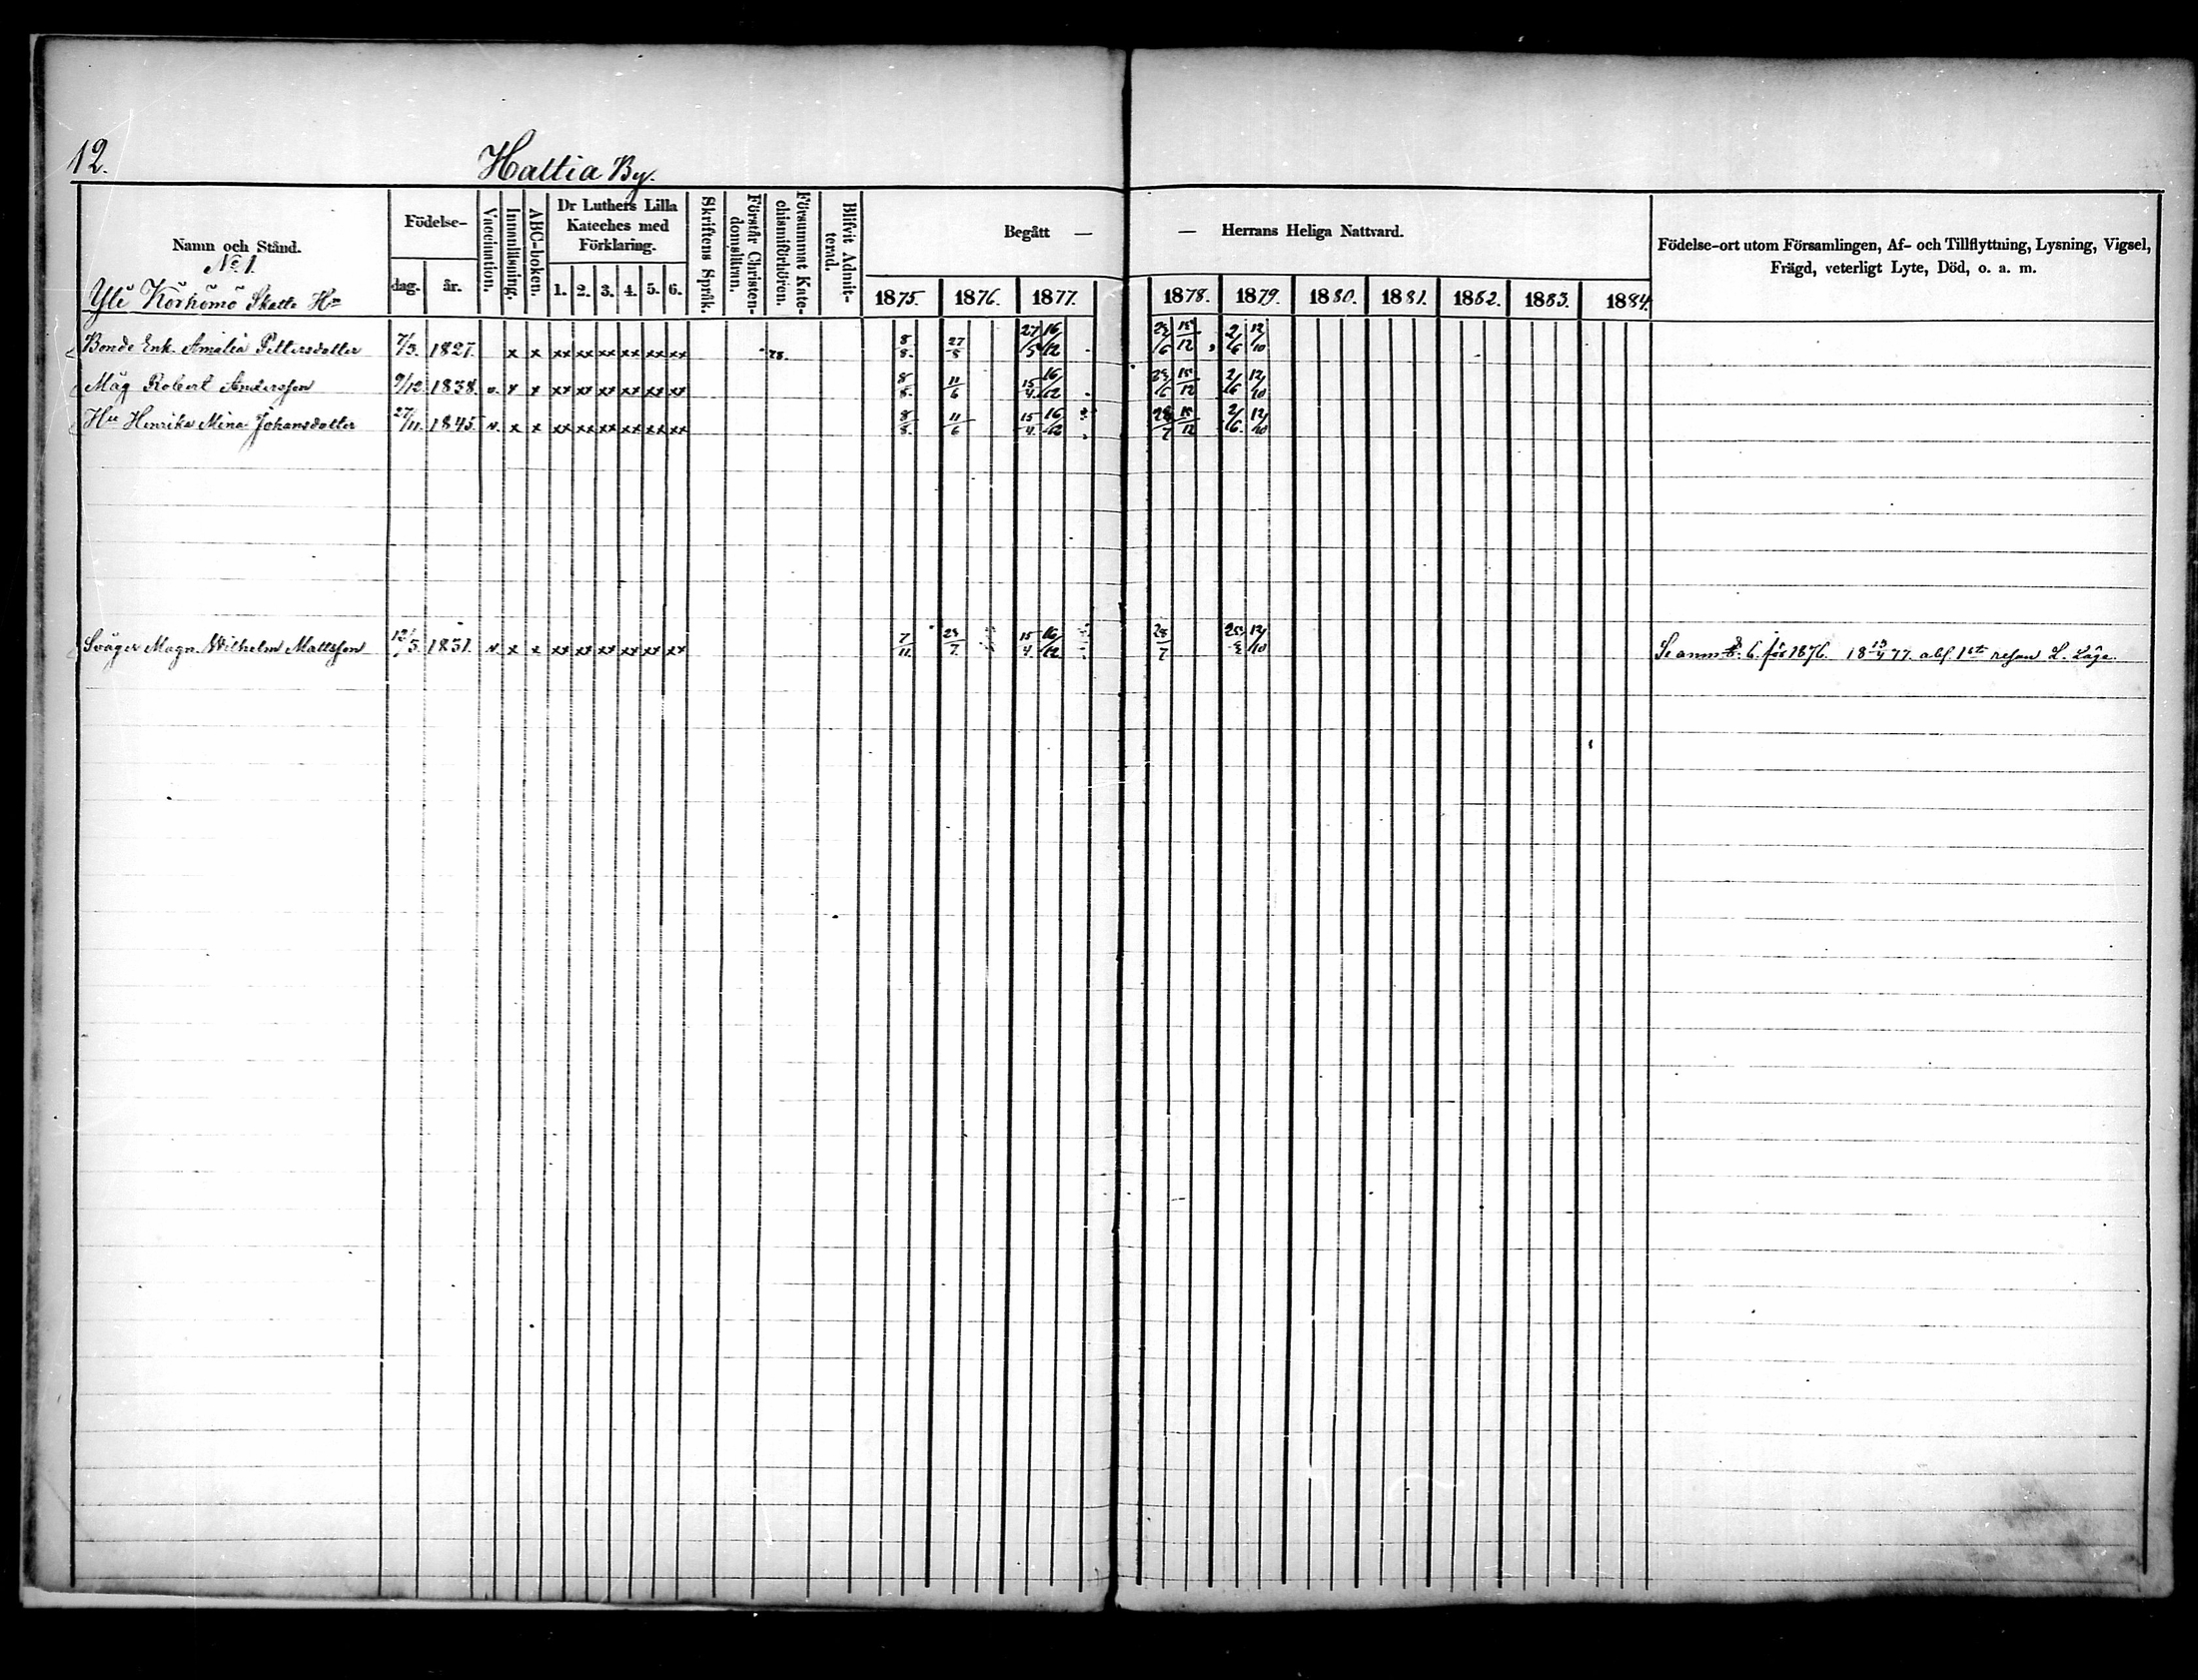 12.
Haltia By.
Namn och Stånd.
No 1.
Yli Körkömö Skatte Hn
Födelse-
dag. år.
Vaccination.
Innanläsning.
ABC-boken.
Dr Luthers Lilla
Kateches med
Förklaring.
1. 2. 3. 4. 5. 6.
Skriftens Språk.
Förstår Christen-
domsläran.
Försummat Kate-
chismiförhören.
Blifvit Admit-
terad.
Begått — — Herrans Heliga Nattvard.
1875. 1876. 1877. 1878. 1879. 1880. 1881. 1882. 1883. 1884.
Födelse-ort utom Församlingen, Af- och Tillflyttning, Lysning, Vigsel,
Frägd, veterligt Lyte, Död, o. a. m.
Bonde Enk. Amalia Pettersdotter 7/3. 1827. x x xx xx xx xx xx xx 78. 8/8. 27/8 27/5 16/12 12/10
Måg Robert Andersson 9/12 1838. v. x x xx xx xx xx xx xx 8/8. 11/6 15/4. 16/12 2/6 12/10
Hu Henrika Mina Johansdotter 27/11. 1845. v. x x xx xx xx xx xx xx 8/8. 11/6 15/4. 16/12 2/6. 12/10
Svåger Magn. Wilhelm Mattsson 12/3. 1851. v. x x xx xx xx xx xx xx 7/11. 15/4. 16/12 12/10 Se anm 6. för 1876. 77. abs. 1sta resan L.